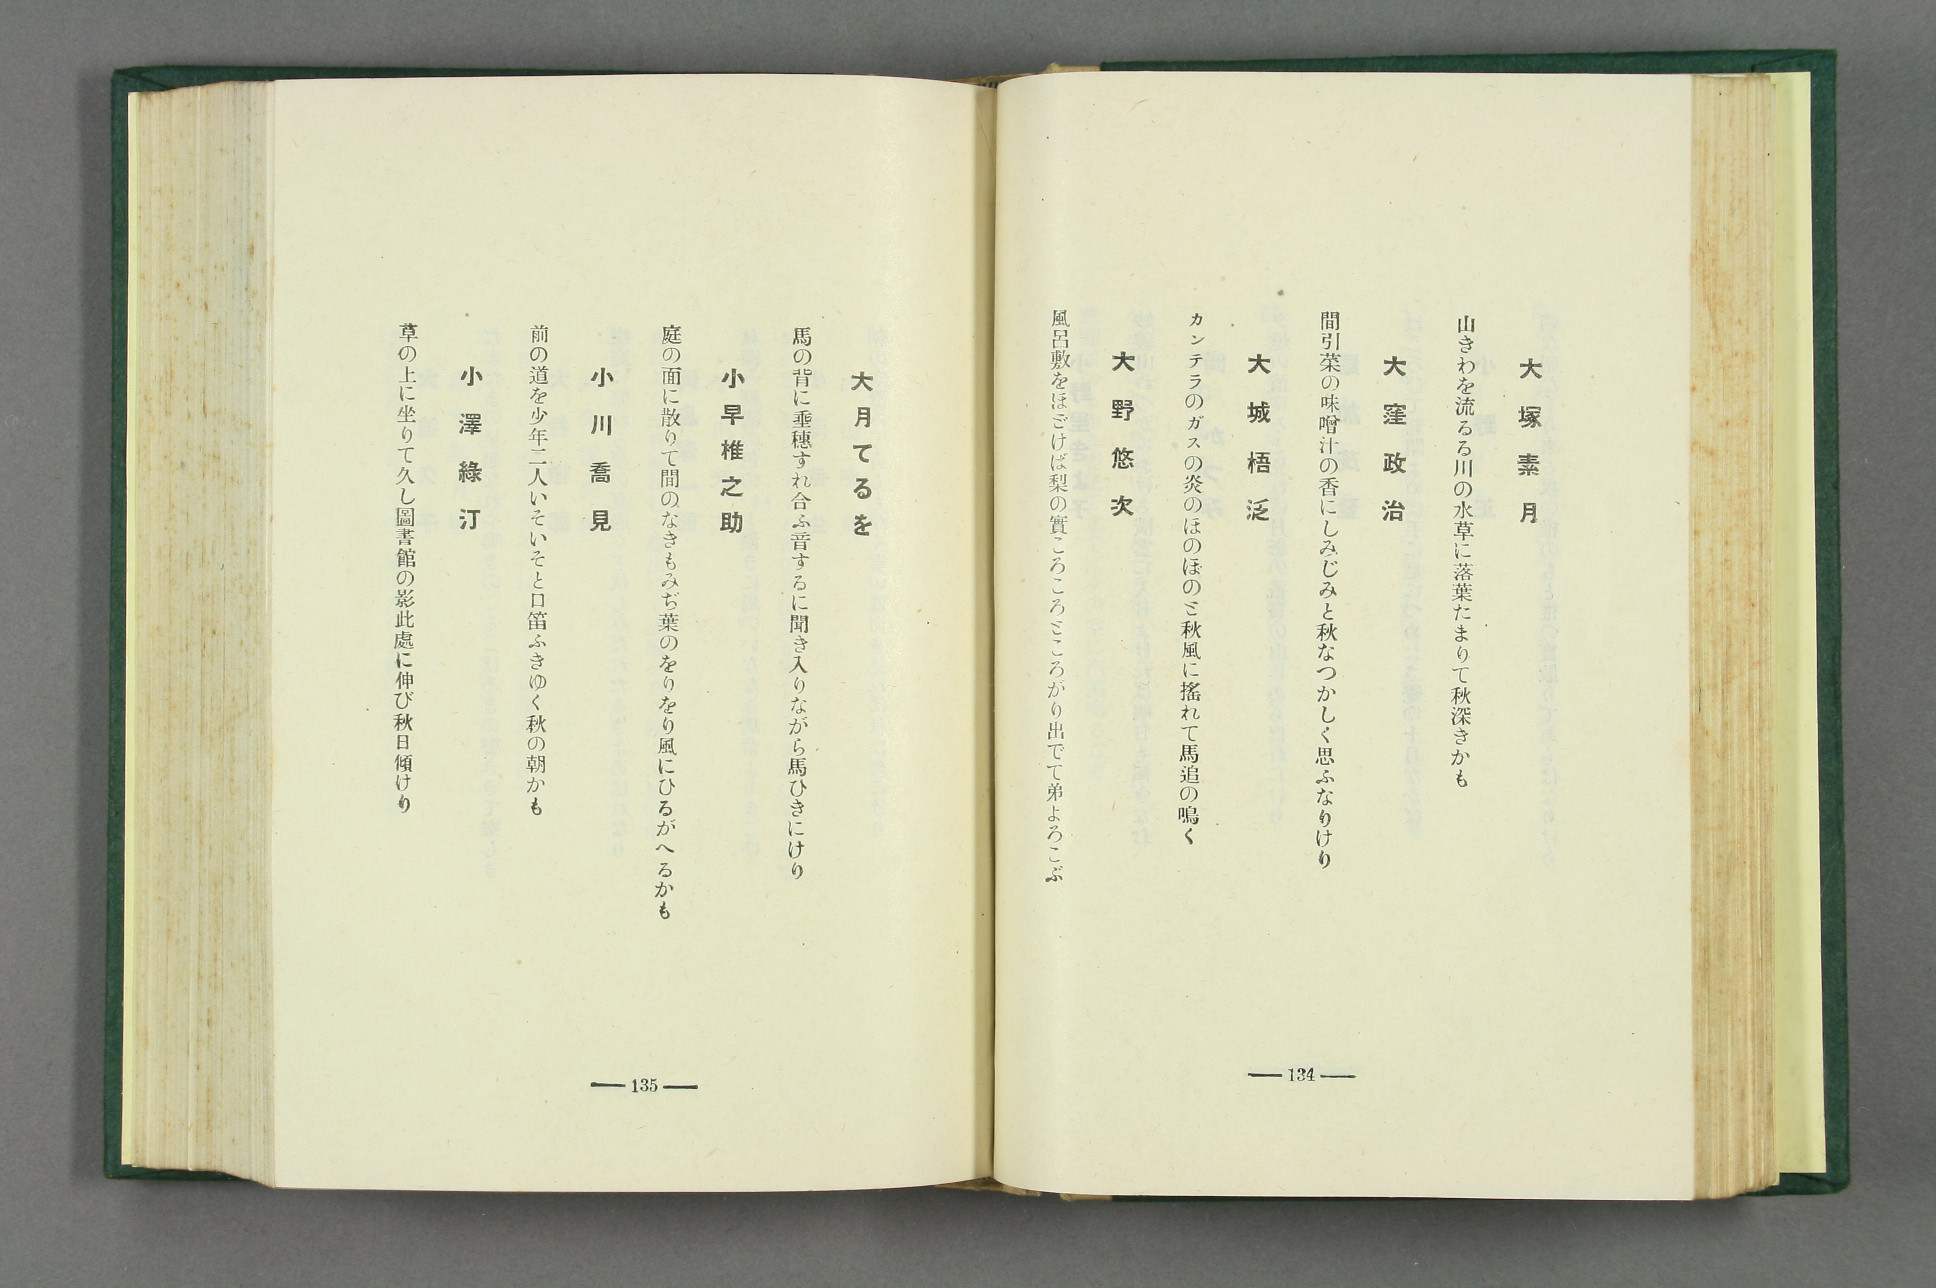 大塚素月
山きわを流るる川の水草に落葉たまりて秋深きかも
大窪政治
間引菜の味噌汁の香にしみじみと秋なつかしく思ふなりけり
大城梧泛
カンテラのガスの炎のほのぼのと秋風に搖れて馬追の鳴く
大野悠次
風呂敷をほごけば梨の實ころころところがり出でて弟よろこぶ
134
大月てるを
馬の背に垂穗すれ合ふ音するに聞き入りながら馬ひきにけり
小早椎之助
庭の面に散りて間のなきもみぢ葉のをりをり風にひるがへるかも
小川喬見
前の道を少年二人いそいそと口笛ふきゆく秋の朝かも
小澤綠汀
草の上に坐りて久し圖書館の影此處に伸び秋日傾けり
135